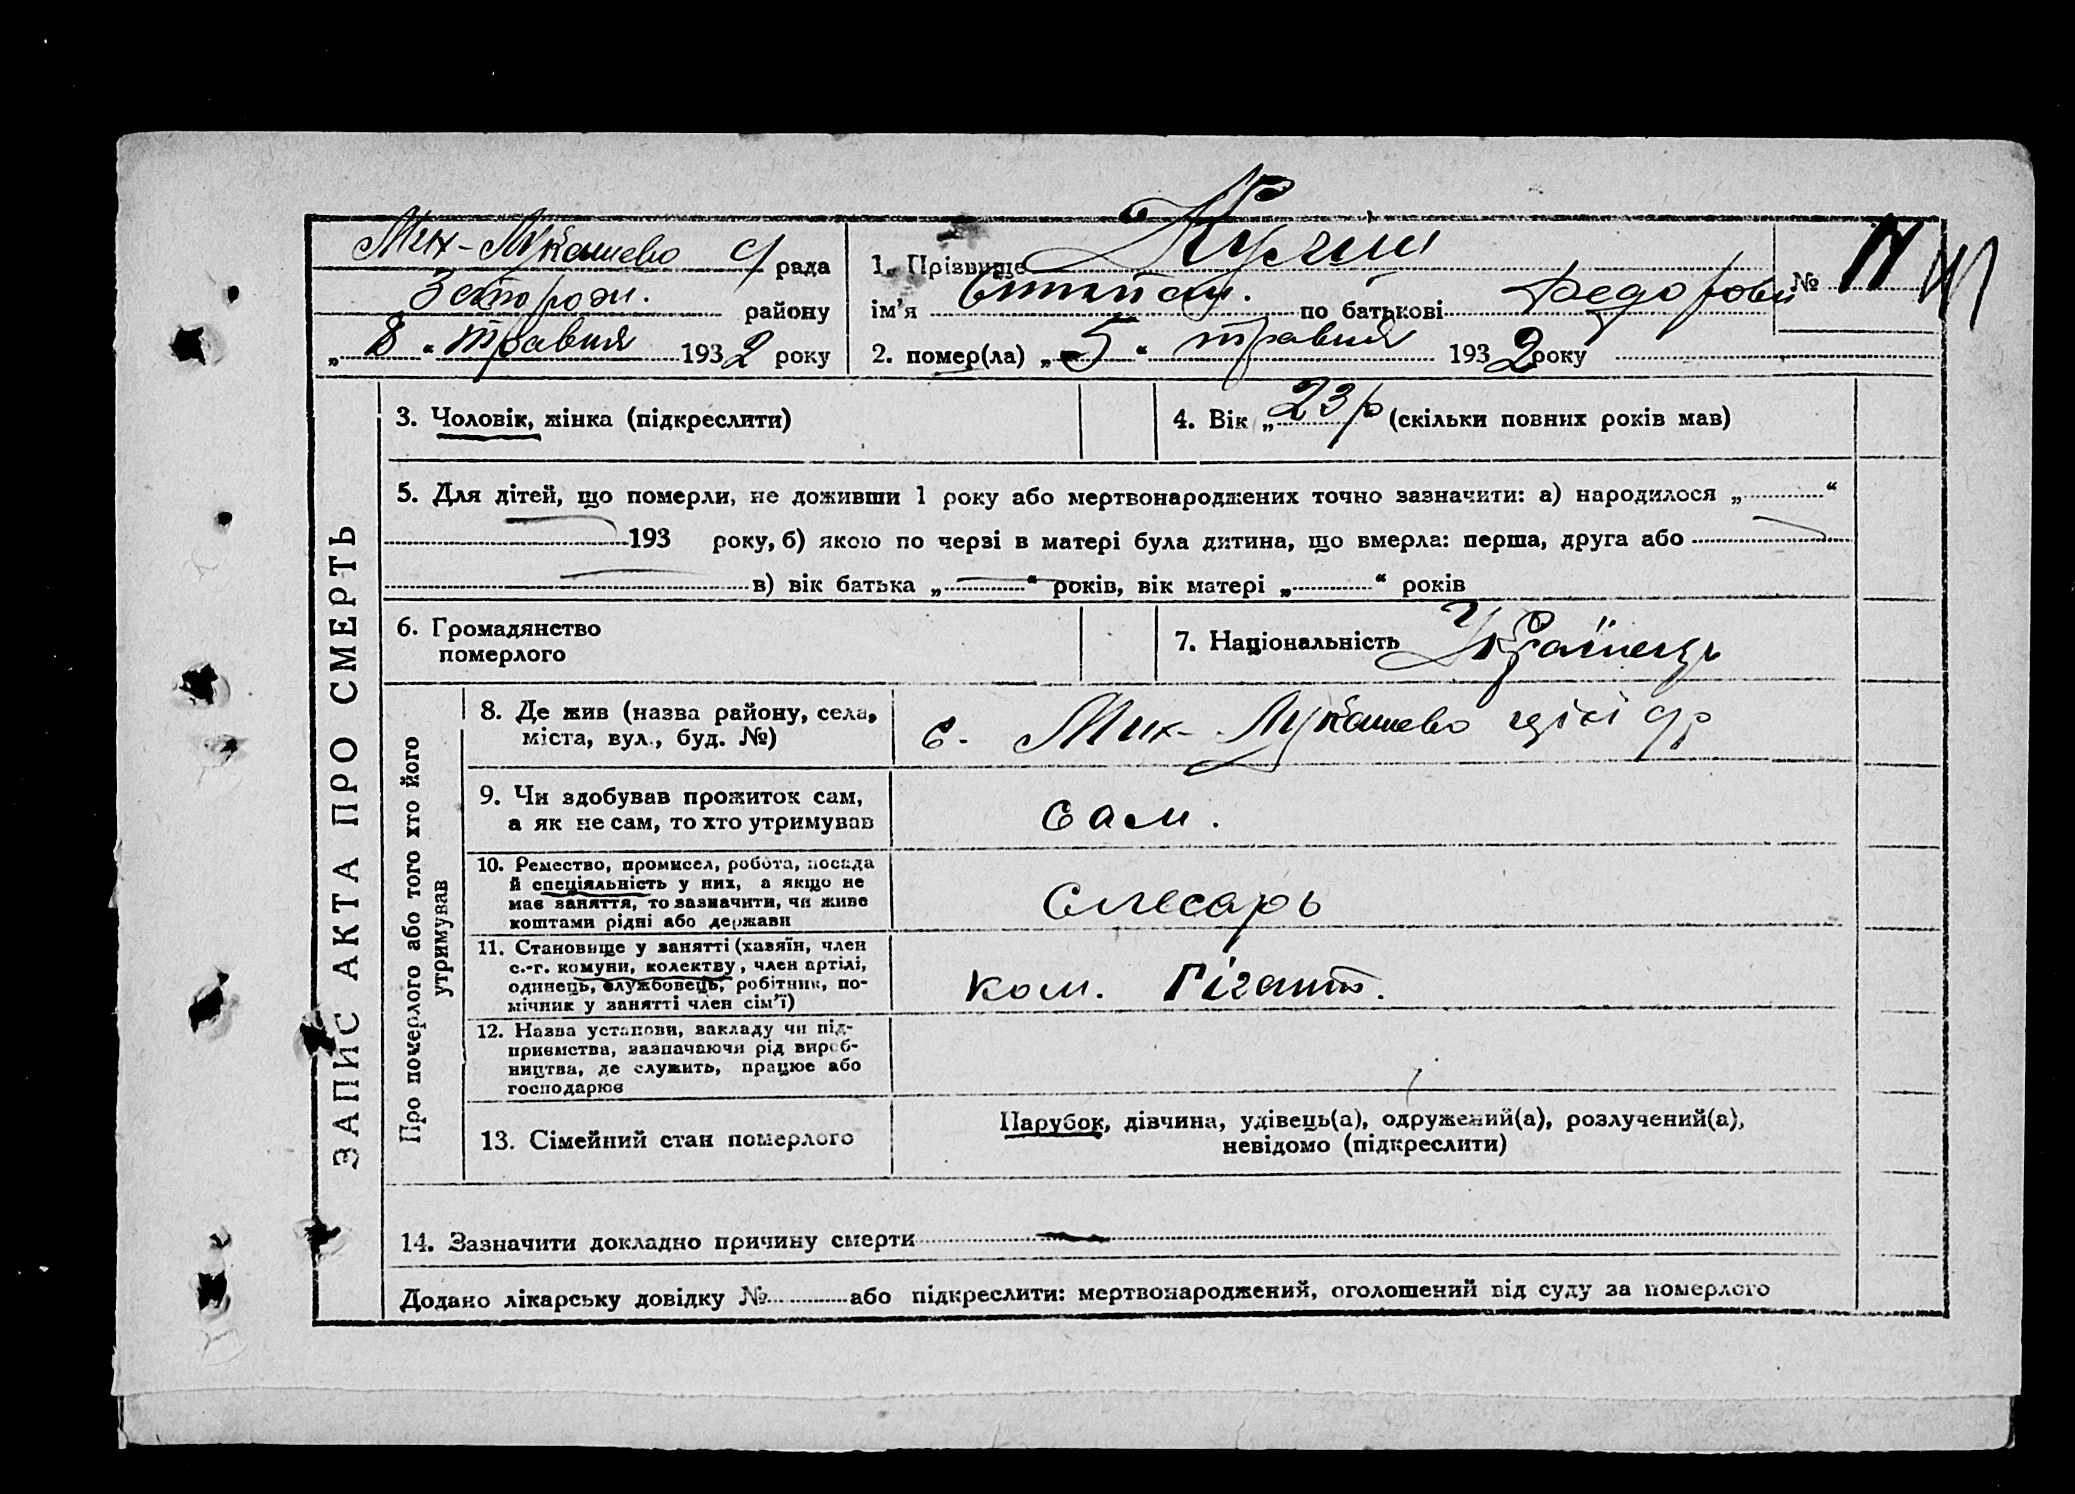 Мик-Лукашево с/ рада
району
„ 8 “ травня 1932 року
1. Прізвище
ім'я по батькові Федорови
№
2. помер(ла) „ 5 “ травня 1932 року
ЗАПИС АКТА ПРО СМЕРТЬ
3. Чоловік, жінка (підкреслити)
4. Вік „ 23 р (скільки повних років мав)
5. Для дітей, що померли, не доживши 1 року або мертвонароджених точно зазначити: а) народилося „ “
193 року, б) якою по черзі в матері була дитина, що вмерла: перша, друга або
в) вік батька „ “ років, вік матері „ “ років
6. Громадянство
померлого
7. Національність Українець
Про померлого або того хто його
утримував
8. Де жив (назва району, села,
міста, вул., буд. №)
с. Мик-Лукашево цієї с/р
9. Чи здобував прожиток сам,
а як не сам, то хто утримував
сам.
10. Ремество, промисел, робота, посада
й спеціяльність у них, а якщо не
має заняття, то зазначити, чи живе
коштами рідні або держави
Слесарь
11. Становище у занятті (хазяїн, член
с.-г. комуни, колективу, член артілі,
одинець, службовець, робітник, по-
мічник у занятті член сім'ї)
Ком. Гігант.
12. Назва установи, закладу чи під-
приємства, зазначаючи рід вироб-
ництва, де служить, працює або
господарює
13. Сімейний стан померлого
Парубок, дівчина, удівець(а), одружений(а), розлучений(а),
невідомо (підкреслити)
14. Зазначити докладно причину смерти
Додано лікарську довідку № або підкреслити: мертвонароджений, оголошений від суду за померлого